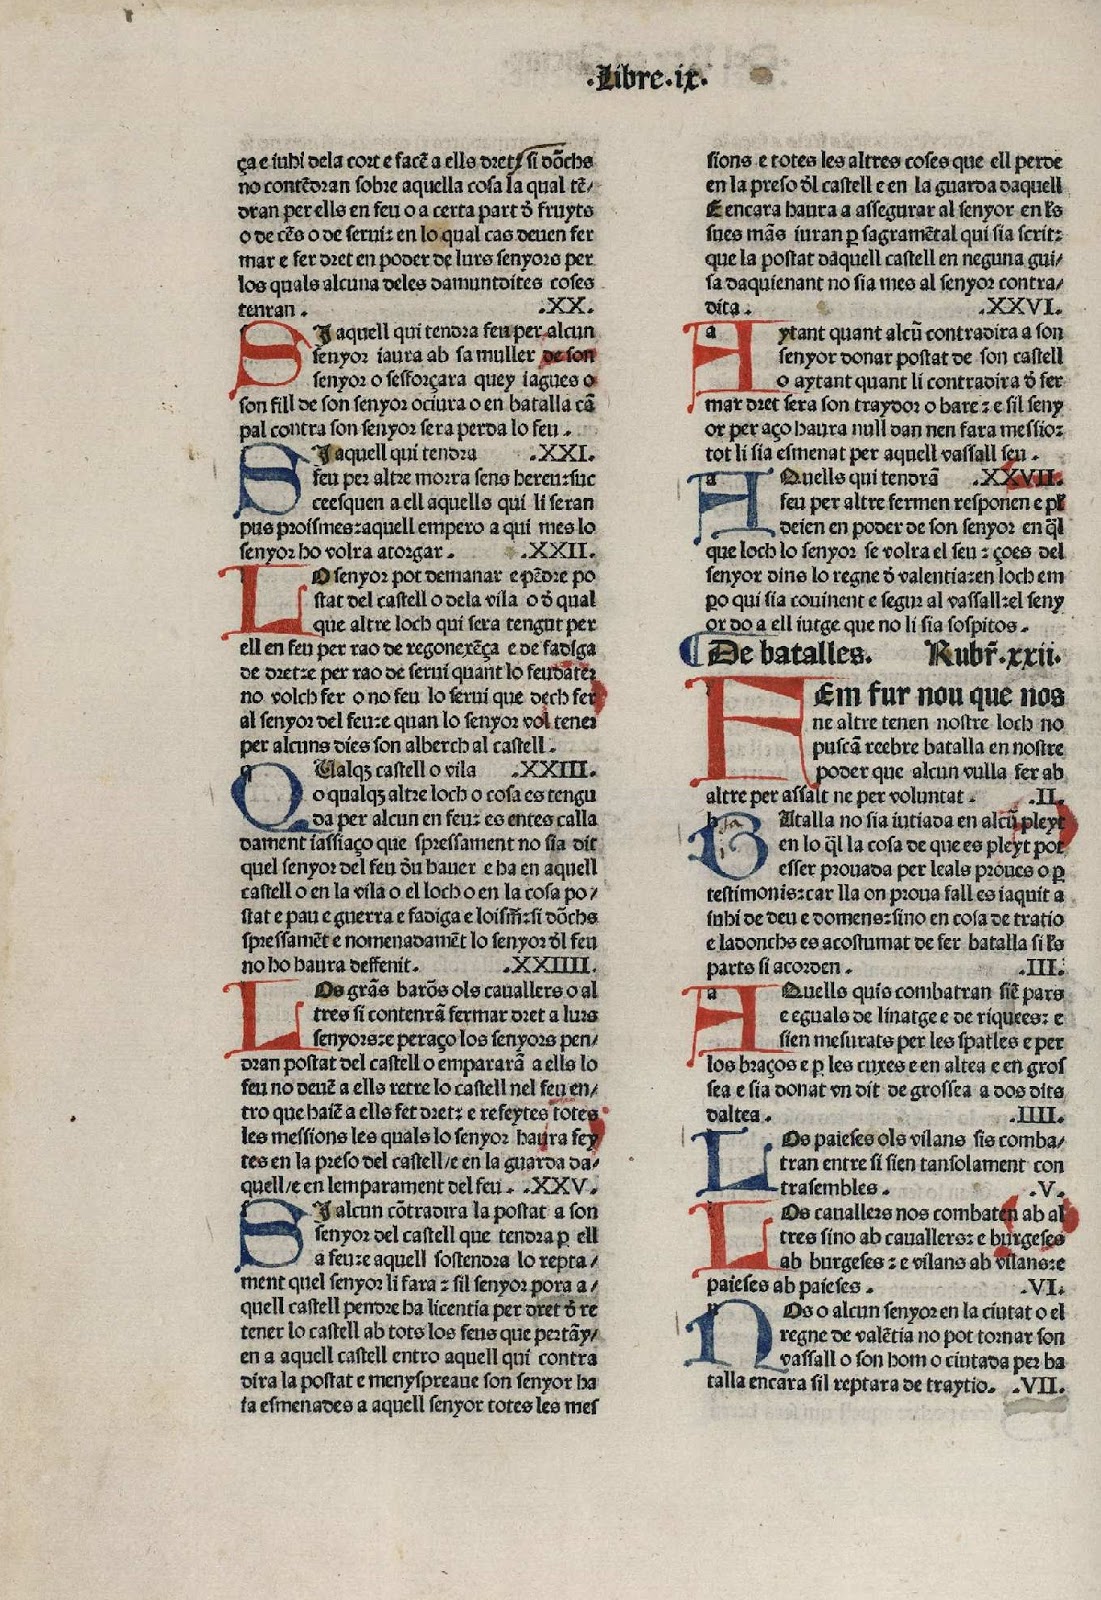 ·Libre·ix·
ça e iuhi dela cort e facẽ a ells dret: si dõchs
no contẽdran sobre aquella cosa la qual tẽ/
dran per ells en feu o a certa part đ fruyts
o de cẽs o de serui: en lo qual cas deuen fer
mar e fer dret en poder de lurs senyors per
los quals alcuna deles damuntdites coses
tenran . .XX.
SI aquell qui tendra feu per alcun
senyor iaura ab sa muller de son
senyor o sesforçara quey iagues o
son fill de son senyor ociura o en batalla cã
pal contra son senyor sera perda lo feu .
SI aquell qui tendra .XXI.
feu per altre morra sens hereu: suc
ceesquen a ell aquells qui li seran
pus proismes: aquell empero a qui mes lo
senyor ho volra atorgar . .XXII.
LO senyor pot demanar e pẽdre po
stat del castell o dela vila o đ qual
que altre loch qui sera tengut per
ell en feu per rao de regonexẽça e de fadiga
de dret: e per rao de serui quant lo feudater
no volch fer o no feu lo serui que dech fer
al senyor del feu: e quan lo senyor vol tener
per alcuns dies son alberch al castell .
QUalqȝ castell o vila .XXIII.
o qualqȝ altre loch o cosa es tengu
da per alcun en feu: es entes calla
dament iassiaço que spressament no sia dit
quel senyor del feu đu hauer e ha en aquell
castell o en la vila o el loch o en la cosa po/
stat e pau e guerra e fadiga e loisme: si dõchs
spressamẽt e nomenadamẽt lo senyor đl feu
no ho haura deffenit . .XXIIII.
LOs grãs barõs ols cauallers o al
tres si contenrã fermar dret a lurs
senyors: e peraço los senyors pen/
dran postat del castell o empararã a ells lo
feu no deuẽ a ells retre lo castell nel feu en/
tro que haiẽ a ells fet dret: e refeytes totes
les messions les quals lo senyor haura fey
tes en la preso del castell/e en la guarda da/
quell/e en lemparament del feu . .XXV.
SI alcun cõtradira la postat a son
senyor del castell que tendra ꝑ ell
a feu: e aquell sostendra lo repta/
ment quel senyor li fara: sil senyor pora a/
quell castell pendre ha licentia per dret đ re
tener lo castell ab tots los feus que pertãy/
en a aquell castell entro aquell qui contra
dira la postat e menyspreaue son senyor ha
ia esmenades a aquell senyor totes les mes
sions e totes les altres coses que ell perde
en la preso đl castell e en la guarda daquell
E encara haura a assegurar al senyor en les
sues mãs iuran ꝑ sagramẽtal qui sia scrit:
que la postat daquell castell en neguna gui/
sa daquienant no sia mes al senyor contra/
dita . .XXVI.
AYtant quant alcũ contradira a son
senyor donar postat de son castell
o aytant quant li contradira đ fer
mar dret sera son traydor o bare: e sil seny
or per aço haura null dan nen fara messio:
tot li sia esmenat per aquell vassall seu .
AQuells qui tendrã .XXVII.
feu per altre fermen responen e pl
deien en poder de son senyor en q̃l
que loch lo senyor se volra el feu: çoes del
senyor dins lo regne đ valentia: en loch em
ꝑo qui sia couinent e segur al vassall: el seny
or do a ell iutge que no li sia sospitos .
De batalles. Rubr̃.xxii.
FEm fur nou que nos
ne altre tenen nostre loch no
puscã reebre batalla en nostre
poder que alcun vulla fer ab
altre per assalt ne per voluntat . .II.
BAtalla no sia iutiada en alcũ pleyt
en lo q̃l la cosa de que es pleyt pot
esser prouada per leals proues o ꝑ
testimonis: car lla on proua fall es iaquit a
iuhi de deu e domens: sino en cosa de tratio
e ladonchs es acostumat de fer batalla si les
parts si acorden . .III.
AQuells quis combatran siẽ pars
e eguals de linatge e de riquees: e
sien mesurats per les spatles e per
los braços e ꝑ les cuxes e en altea e en gros
sea e sia donat vn dit de grossea a dos dits
daltea . .IIII.
LOs paieses ols vilans sis comba/
tran entre si sien tansolament con
trasembles . .V.
LOs cauallers nos combaten ab al
tres sino ab cauallers: e burgeses
ab burgeses: e vilans ab vilans: e
paieses ab paieses . .VI.
NOs o alcun senyor en la ciutat o el
regne de valẽtia no pot tornar son
vassall o son hom o ciutada per ba
talla encara sil reptara de traytio. .VII.